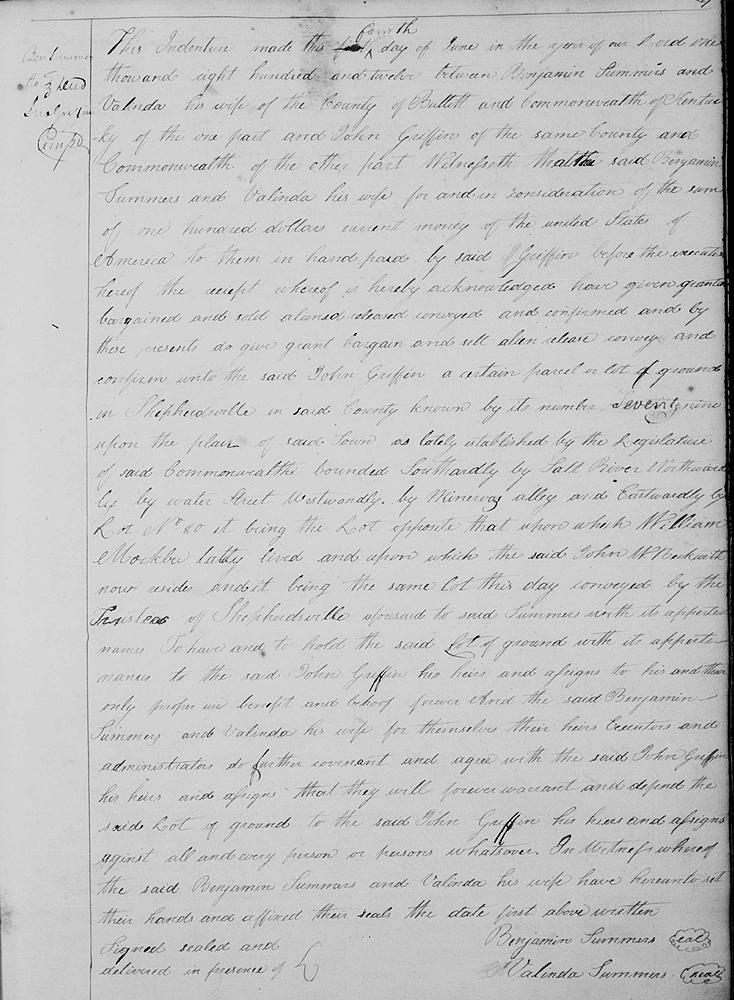 Ben Summers
to } Deed
Jno Griffin
Comp'd
This Indenture made this first fourth day of June in the year of our Lord one
thousand eight hundred and twelve between Benjamin Summers and
Valinda his wife of the County of Bullitt and Commonwealth of Kentuc
-ky of the one part and John Griffin of the same County and
Commonwealth of the other part Witnesseth that the said Benjamin
Summers and Valinda his wife for and in consideration of the sum
of one hundred dollars current money of the united States of
America to them in hand paid by said Griffin before the executio
hereof the receipt whereof is hereby acknowledged have given granted
bargained and sold aliened released conveyed and confirmed and by
these presents do give grant bargain and sell alien release convey and
confirm unto the said John Griffin a certain parcel or lot of ground
in Shepherdsville in said County known by its number Seventy nine
upon the plan of said Town as lately established by the Legislature
of said Commonwealthe bounded Southardly by Salt River Northward
ly by water Street Westwardly by Minervas alley and Eastwardly by
Lot No 80 it being the Lot opposite that upon which William
Mockbee latly lived and upon which the said John W Beckwith
now resides and it being the same lot this day conveyed by the
Trustees of Shepherdsville aforesaid to said Summers with its apperte
nances To have and to hold the said Lot of ground with its apperte
nances to the said John Griffin his heirs and assigns to his and their
only proper use benefit and behoof forever And the said Benjamin
Summers and Valinda his wife for themselves their heirs Executors and
administrators do further covenant and agree with the said John Griffin
his heirs and assigns that they will forever warrant and defend the
said Lot of ground to the said John Griffin his heirs and assigns
against all and every person or persons whatsover. In Witness whereof
the said Benjamin Summars and Valinda his wife have hereunto set
their hands and affixed their seals the date first above written
Signed sealed and
delivered in presence of
Benjamin Summers seal
Valinda Summers seal